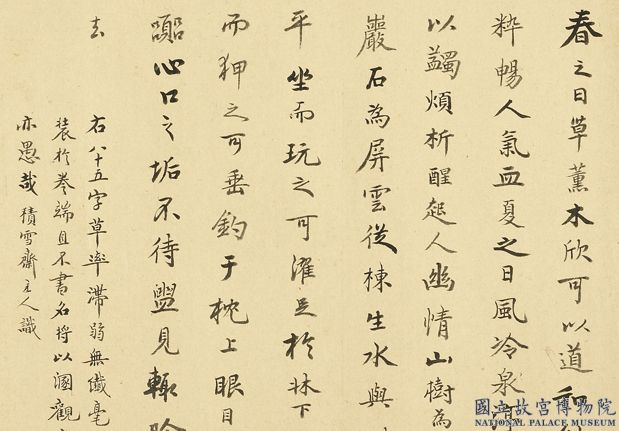 春之日草薰木欣可以道和
粹暢人氣血夏之日風冷泉渟
以蠲煩析酲起人幽情山樹為
巖石為屏雲從棟生水與
平坐而玩之可濯足於牀下
而狎之可垂釣于枕上眼目
囂心口之垢不待盥見輒除
去
右八十五字草率滯弱無纖毫
装於卷端且不書名将以溷觀
亦愚哉積雪齋主人識
國立故宮博物院
NATIONAL PALACE MUSEUM